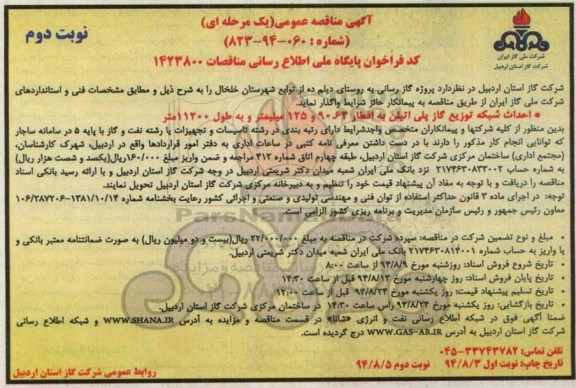 آگهی مناقصه عمومی(یک مرحله ای)
(شماره : ۰۶۰-۹۴-۸۲۳)
کد فراخوان پایگاه ملی اطلاع رسانی مناقصات ۱۴۲۳۸۰۰
نوبت دوم
شرکت ملی گاز ایران
شرکت گاز استان اردبیل
شرکت گاز استان اردبیل در نظردارد پروژه گاز رسانی به روستای دیلم ده از توابع شهرستان خلخال را به شرح ذیل و مطابق مشخصات فنی و استانداردهای
شرکت ملی گاز ایران از طریق مناقصه به پیمانکار حائز شرایط واگذار نماید.
احداث شبکه توزیع گاز پلی اتیلن به اقطار ۶۳،۹۰ و ۱۲۵ میلیمتر و به طول ۱۱۲۰۰متر
بدین منظور از کلیه شرکتها و پیمانکاران متخصص واجدشرایط دارای رتبه بندی در رشته تاسیسات و تجهیزات یا رشته نفت و گاز با پایه ۵ در سامانه ساجار
که توانایی انجام کار مذکور را دارند با در دست داشتن معرفی نامه کتبی در ساعات اداری به دفتر امور قراردادها واقع در اردبیل، شهرک کارشناسان،
(مجتمع اداری) ساختمان مرکزی شرکت گاز استان اردبیل، طبقه چهارم اتاق شماره ۳۱۲ مراجعه و ضمن واریز مبلغ ۱۶۰/۰۰۰ ریال(یکصد و شصت هزار ریال)
به شماره حساب ۲۱۷۴۶۳۰۸۳۳۰۰۲ نزد بانک ملی ایران شعبه میدان دکتر شریعتی اردبیل در وجه شرکت گاز استان اردبیل و با ارائه رسید بانکی اسناد
مناقصه را دریافت و با توجه به مفاد آن پیشنهاد قیمت خود را تنظیم و به دبیرخانه مرکزی شرکت گاز استان اردبیل تحویل نمایند.
توجه: در اجرای ماده ۳ قانون حداکثر استفاده از توان فنی و مهندسی تولیدی و صنعتی و اجرائی کشور رعایت بخشنامه شماره ۱۰۶/۲۸۷۲۰۶-۱۳۸۱/۱۰/۱۴
معاون رئیس جمهور و رئیس سازمان مدیریت و برنامه ریزی کشور الزامی است.
مبلغ و نوع تضمین شرکت در مناقصه: سپرده شرکت در مناقصه به مبلغ ۲۲/۰۰۰/۰۰۰ ریال(بیست و دو میلیون ریال) به صورت ضمانتنامه معتبر بانکی و
یا واریز به حساب شماره ۲۱۷۴۶۳۰۸۱۴۰۰۱ بانک ملی ایران شعبه میدان دکتر شریعتی اردبیل.
تاریخ شروع فروش اسناد: روزشنبه مورخ ۹۴/۸/۹ از ساعت ۸:۰۰
تاریخ پایان فروش اسناد: روز چهارشنبه مورخ ۹۴/۸/۱۳ قبل از ساعت ۱۴:۳۰
تاریخ تسلیم پیشنهاد قیمت: روز یکشنبه مورخ ۹۴/۸/۲۴ قبل از ساعت ۱۲:۰۰
تاریخ بازگشائی: روز یکشنبه مورخ ۹۴/۸/۲۴ راس ساعت ۱۴:۳۰ در ساختمان مرکزی شرکت گاز استان اردبیل.
ضمنا آگهی فوق در شبکه اطلاع رسانی نفت و انرژی «شانا» در قسمت مناقصه و مزایده به آدرس WWW.SHANA.IR و شبکه اطلاع رسانی
شرکت گاز استان اردبیل به آدرس WWW.GAS-AR.IR درج گردیده است.
تلفن تماس: ۳۳۷۴۳۷۸۲-۰۴۵
تاریخ چاپ: نوبت اول ۹۴/۸/۳ نوبت دوم ۹۴/۸/۵
روابط عمومی شرکت گاز استان اردبیل